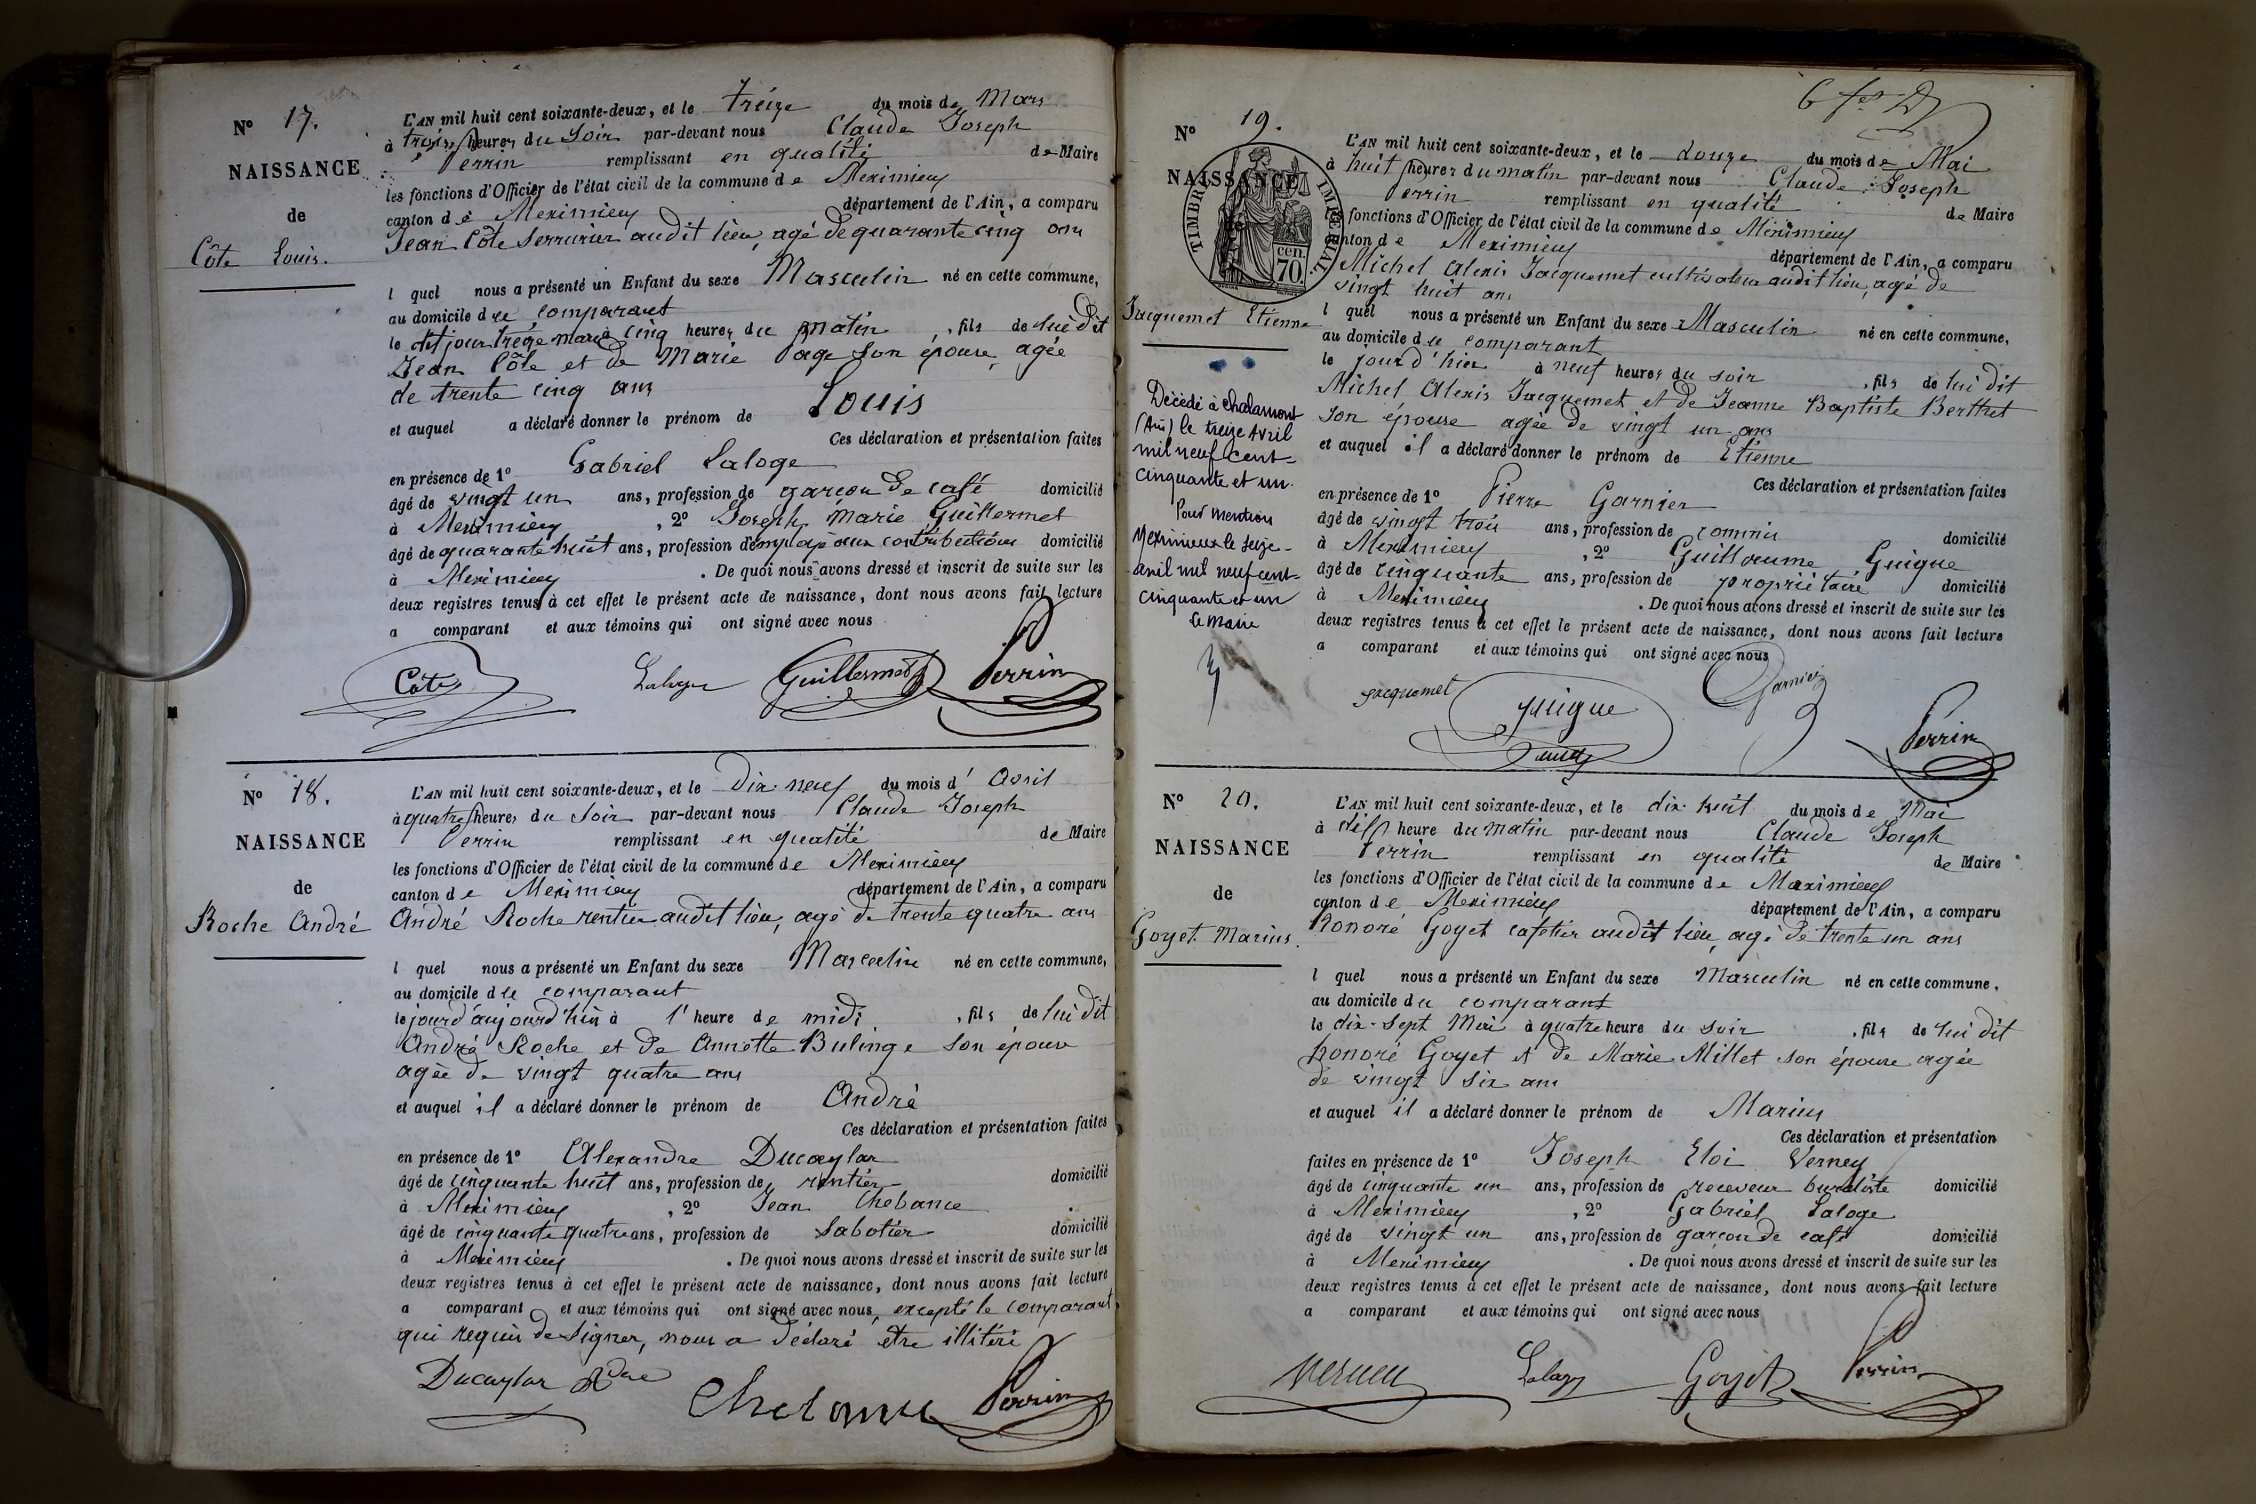 N° 17.
NAISSANCE
de
Côte Louis.
L'AN mil huit cent soixante-deux, et le treize du mois de Mars
à trois heures du Soir par-devant nous Claude Joseph
Perrin remplissant en qualité de Maire
les fonctions d'Officier de l'état civil de la commune de Meximieux
canton de Meximieux département de l'Ain, a comparu
Jean Côte Serrurier audit lieu, agé de quarante cinq ans
l quel nous a présenté un Enfant du sexe Masculin né en cette commune,
au domicile du comparant
le dit jour treize mars à cinq heures du matin, fils de lui dit
Jean Côte et de Marie Page son épouse, agée
de trente cinq ans
et auquel a déclaré donner le prénom de Louis
Ces déclaration et présentation faites
en présence de 1° Gabriel Laloge
âgé de vingt un ans, profession de garcon de café domicilié
à Meximieux, 2° Joseph Marie Guillermet
âgé de quarante huit ans, profession d'employé aux contributions domicilié
à Meximieux. De quoi nous avons dressé et inscrit de suite sur les
deux registres tenus à cet effet le présent acte de naissance, dont nous avons fait lecture
a comparant et aux témoins qui ont signé avec nous
Côte Laloge Guillermet Perrin
N° 18.
NAISSANCE
de
Roche André
L'AN mil huit cent soixante-deux, et le dix-neuf du mois d'Avril
à quatre heures du Soir par-devant nous Claude Joseph
Perrin remplissant en qualité de Maire
les fonctions d'Officier de l'état civil de la commune de Meximieux
canton de Meximieux département de l'Ain, a comparu
André Roche rentier audit lieu, agé de trente quatre ans
l quel nous a présenté un Enfant du sexe Masculin né en cette commune,
au domicile du comparant
le jour d'aujourd'hui à l'heure de midi, fils de lui dit
André Roche et de Annette Bulinge son épouse
agée de vingt quatre ans
et auquel il a déclaré donner le prénom de André
Ces déclaration et présentation faites
en présence de 1° Alexandre Ducaylar
âgé de cinquante huit ans, profession de rentier domicilié
à Meximieux, 2° Jean Chebance
âgé de cinquante quatre ans, profession de Sabotier domicilié
à Meximieux. De quoi nous avons dressé et inscrit de suite sur les
deux registres tenus à cet effet le présent acte de naissance, dont nous avons fait lecture
a comparant et aux témoins qui ont signé avec nous, excepté le comparant
qui requis de signer, nous a déclaré etre illitéré
Ducaylar Perrin
N° 19.
NAISSANCE
de
TIMBRE IMPÉRIAL.
70 cen.
Jacquemet Etienne
Décédé à Chalamont
(Ain) le treize Avril
mil neuf cent-
cinquante et un.
Pour mention
Meximieux le seize-
avril mil neuf cent-
cinquante et un
Le Maire
L'AN mil huit cent soixante-deux, et le douze du mois de Mai
à huit heures du matin par-devant nous Claude Joseph
Perrin remplissant en qualité de Maire
les fonctions d'Officier de l'état civil de la commune de Meximieux
canton de Meximieux département de l'Ain, a comparu
Michel Alexis Jacquemet cultivateur audit lieu, agé de
vingt huit ans
l quel nous a présenté un Enfant du sexe Masculin né en cette commune,
au domicile du comparant
le jour d'hier à neuf heures du soir, fils de lui dit
Michel Alexis Jacquemet et de Jeanne Baptiste Berthet
son épouse agée de vingt un ans
et auquel il a déclaré donner le prénom de Etienne
Ces déclaration et présentation faites
en présence de 1° Pierre Garnier
âgé de vingt trois ans, profession de commis domicilié
à Meximieux, 2° Guillaume Guigue
âgé de cinquante ans, profession de propriétaire domicilié
à Meximieux. De quoi nous avons dressé et inscrit de suite sur les
deux registres tenus à cet effet le présent acte de naissance, dont nous avons fait lecture
a comparant et aux témoins qui ont signé avec nous
Jacquemet Guigue Garnier
Perrin
N° 20.
NAISSANCE
de
Goyet Marius.
L'AN mil huit cent soixante-deux, et le dix-huit du mois de Mai
à dix heure du matin par-devant nous Claude Joseph
Perrin remplissant en qualité de Maire
les fonctions d'Officier de l'état civil de la commune de Meximieux
canton de Meximieux département de l'Ain, a comparu
honoré Goyet cafetier audit lieu, agé de trente un ans
l quel nous a présenté un Enfant du sexe Masculin né en cette commune,
au domicile du comparant
le dix-sept Mai à quatre heure du soir, fils de lui dit
honoré Goyet et de Marie Millet son épouse agée
de vingt six ans
et auquel il a déclaré donner le prénom de Marius
Ces déclaration et présentation
faites en présence de 1° Joseph Eloi Verney
âgé de cinquante un ans, profession de receveur buraliste domicilié
à Meximieux, 2° Gabriel Laloge
âgé de vingt un ans, profession de garcon de café domicilié
à Meximieux. De quoi nous avons dressé et inscrit de suite sur les
deux registres tenus à cet effet le présent acte de naissance, dont nous avons fait lecture
a comparant et aux témoins qui ont signé avec nous
Verney Laloge Goyet Perrin